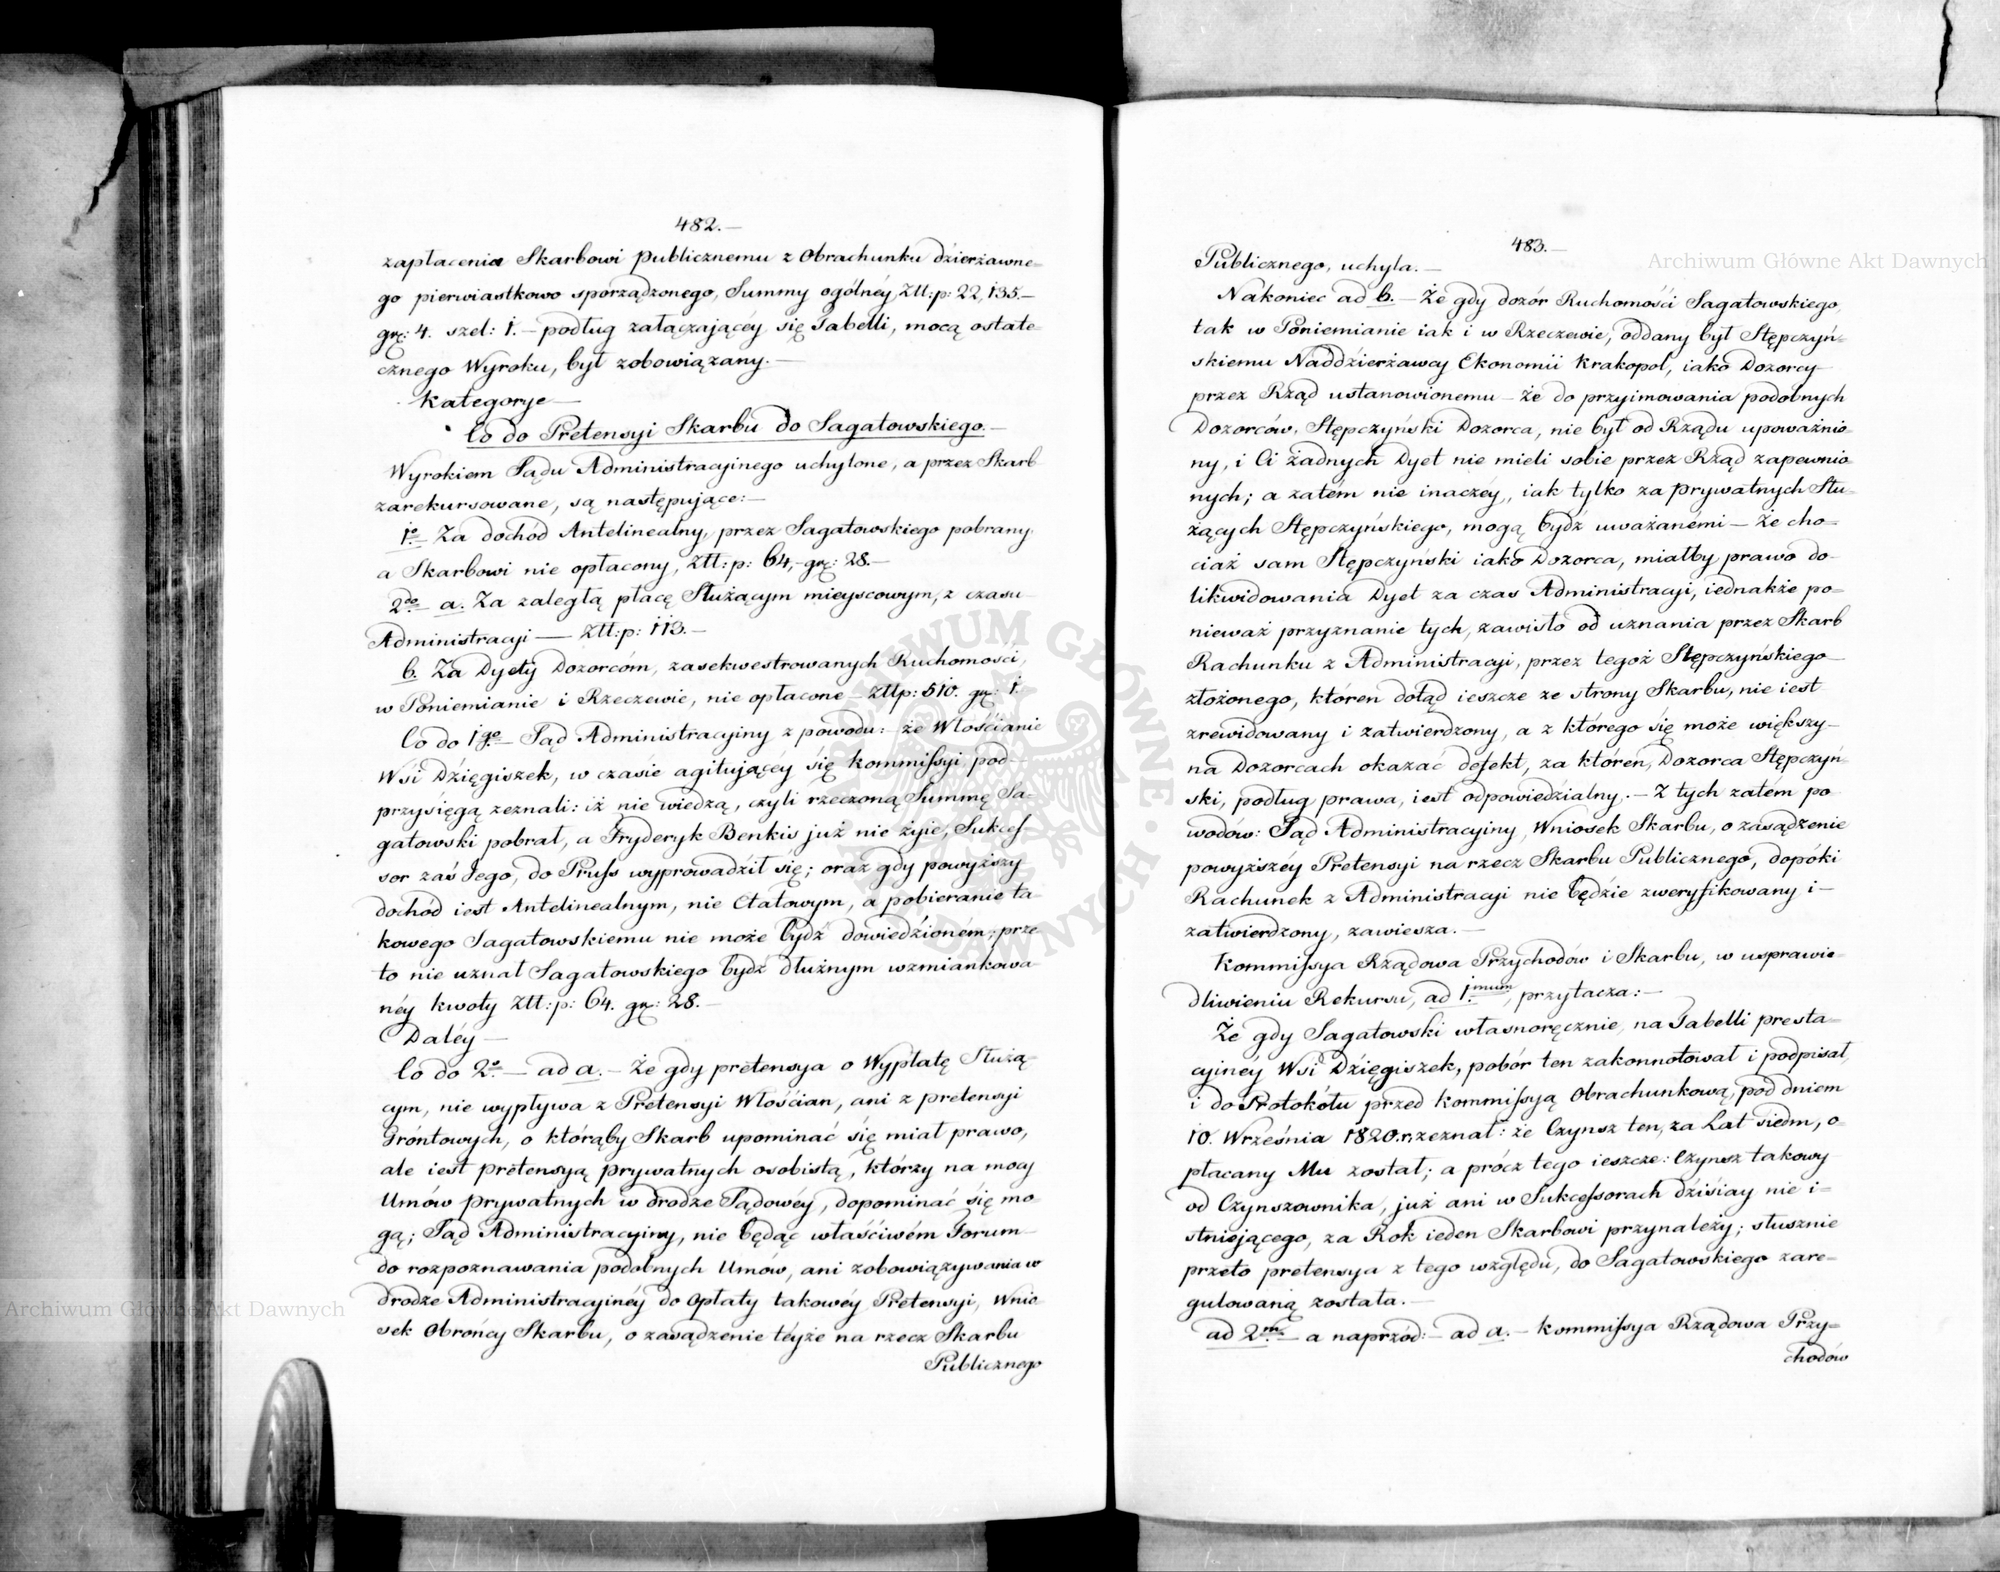 482.—
zapłacenia Skarbowi publicznemu z Obrachunku dzierżawne-
go pierwiastkowo sporządzonego, Summy ogólnéy, Złł:p: 22,135.—
grz: 4. szel: 1.— podług załączającéy się Tabelli, mocą ostate-
cznego Wyroku, był zobowiązany.—
Kategorye—
Co do Pretensyi Skarbu do Sagatowskiego.—
Wyrokiem Sądu Administracyinego uchylone, a przez Skarb
zarekursowane, są następujące:—
1o. Za dochód Antelinealny, przez Sagatowskiego pobrany
a Skarbowi nie opłacony, Złł:p: 64,- grz: 28.—
2do. a. Za zaległą płacę Służącym mieyscowym, z czasu
Administracyi — Złł:p: 113.—
b. Za Dyety Dozorcóm, zasekwestrowanych Ruchomości,
w Poniemianie i Rzeczewie, nie opłacone — złłp: 510. grz: 1.
Co do 1go.— Sąd Administracyiny z powodu: że Włościanie
Wsi Dzięgiszek, w czasie agitującéy się Kommissyi pod—
przysięgą zeznali: iż nie wiedzą, czyli rzeczoną Summę Sa-
gatowski pobrał, a Fryderyk Benkis już nie żyie, Sukces-
sor zaś Jego, do Pruss wyprowadził się; oraz gdy powyższy
dochód iest Antelinealnym, nie Etatowym, a pobieranie ta-
kowego Sagatowskiemu nie może bydź dowiedzioném; prze
to nie uznał Sagatowskiego bydź dłużnym wzmiankowa-
néy kwoty Złł:p: 64. grz: 28.—
Daléy—
Co do 2o.— ad a.— Że gdy pretensya o Wypłatę Służą-
cym, nie wypływa z Pretensyi Włościan, ani z pretensyi
Gróntowych, o którąby Skarb upominać się miał prawo,
ale iest pretensyą prywatnych osobistą, którzy na mocy
Umów prywatnych w drodze Sądowéy, dopominać się mo-
gą; Sąd Administracyiny, nie będąc właściwém Forum—
do rozpoznawania podobnych Umów, ani zobowiązywania w
drodze Administracyinéy do Opłaty takowéy Pretensyi, Wnio-
sek Obrońcy Skarbu, o zasądzenie téyże na rzecz Skarbu
Publicznego
483.—
Publicznego, uchyla.—
Nakoniec ad b.— Że gdy dozór Ruchomości Sagatowskiego,
tak w Poniemianie iak i w Rzeczewie, oddany był Stępczyń-
skiemu Naddzierżawcy Ekonomii Krakopol, iako Dozorcy
przez Rząd ustanowionemu — że do przyimowania podobnych
Dozorców, Stępczyński Dozorca, nie był od Rządu upoważnio-
ny, i Ci żadnych Dyet nie mieli sobie przez Rząd zapewnio-
nych; a zatém nie inaczéy, iak tylko za prywatnych Słu-
żących Stępczyńskiego, mogą bydź uważanemi — że cho-
ciaż sam Stępczyński iako Dozorca, miałby prawo do-
likwidowania Dyet za czas Administracyi, iednakże po-
nieważ przyznanie tych, zawisło od uznania przez Skarb
Rachunku z Administracyi, przez tegoż Stępczyńskiego—
złożonego, któren dotąd ieszcze ze strony Skarbu, nie iest
zrewidowany i zatwierdzony, a z którego się może większy—
na Dozorcach okazać defekt, za któren, Dozorca Stępczyń-
ski, podług prawa, iest odpowiedzialny.— Z tych zatem po
wodów: Sąd Administracyiny, Wniosek Skarbu, o zasądzenie
powyższéy Pretensyi na rzecz Skarbu Publicznego, dopóki
Rachunek z Administracyi nie będzie zweryfikowany i—
zatwierdzony, zawiesza.—
Kommissya Rządowa Przychodów i Skarbu, w usprawie-
dliwieniu Rekursu, ad 1mum, przytacza:—
Że gdy Sagatowski własnoręcznie, na Tabelli presta-
cyinéy Wsi Dzięgiszek, pobór ten zakonnotował i podpisał,
i do Protokółu przed Kommissyą Obrachunkową, pod dniem
10. Września 1820.r. zeznał: że Czynsz ten, za Lat siedm, o-
płacany Mu został; a prócz tego ieszcze: Czynsz takowy
od Czynszownika, już ani w Sukcessorach dzisiay nie i-
stniejącego, za Rok ieden Skarbowi przynależy; słusznie
przeto pretensya z tego względu, do Sagatowskiego zare-
gulowaną została.—
ad 2m.— a naprzód:— ad a.— Kommissya Rządowa Przy-
chodów
Archiwum Główne Akt Dawnych
Archiwum Główne Akt Dawnych
ARCHIWUM GŁÓWNE AKT DAWNYCH